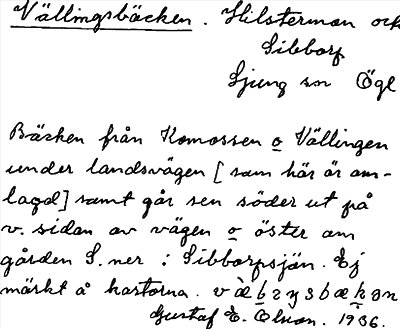 Vällingsbäcken. Hilsterman och
Sibborp
Ljung sn Ögl
Bäcken från Komossen o Vällingen
under landsvägen [som här är om-
lagd] samt går sen söder ut på
v. sidan av vägen o öster om
gården S. ner i Sibborpsjön. Ej
märkt å kartorna.
Gustaf E. Olson. 1936.